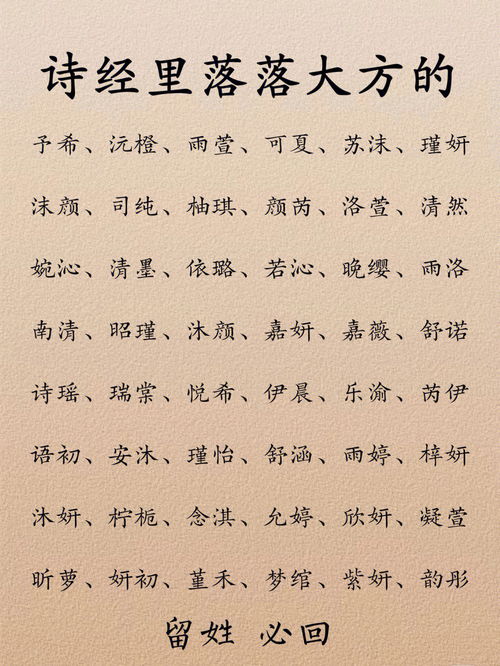 诗经里落落大方的
予希、沅橙、雨萱、可夏、苏沫、瑾妍
沫颜、司纯、柚琪、颜芮、洛萱、清然
婉沁、清墨、依璐、若沁、晚缨、雨洛
南清、昭瑾、沐颜、嘉妍、嘉薇、舒诺
诗瑶、瑞棠、悦希、伊晨、乐渝、芮伊
语初、安沐、瑾怡、舒涵、雨婷、梓妍
沐妍、柠栀、念淇、允婷、欣妍、凝萱
昕萝、妍初、堇禾、梦绾、紫妍、韵彤
留姓 必回